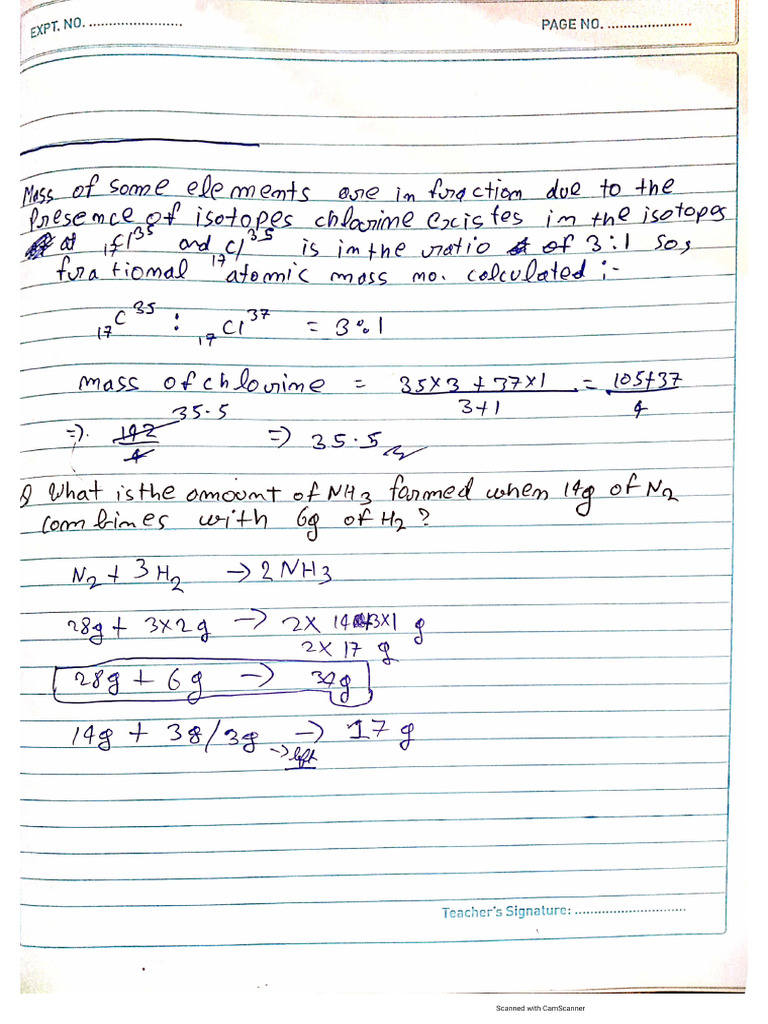 EXPT. NO. ........................
PAGE NO. ......................
Mass of some elements are in furaction due to the
Presence of isotopes chlorine excistes in the isotopes
at ₁₇Cl³⁵ and ₁₇Cl³⁵ is in the uratio of 3:1 So,
furational atomic mass no. calculated :-
₁₇C³⁵ : ₁₇Cl³⁷ = 3%1
mass of chlorine = 35×3 + 37×1 / 3+1 = 105+37 / 4
=> 142/4 35.5 => 35.5
Q What is the amount of NH₃ formed when 14g of N₂
combines with 6g of H₂?
N₂ + 3H₂ → 2NH₃
28g + 3×2g → 2× 14+3×1 g
2× 17 g
28g + 6g → 34g
14g + 3g/3g → 17g
→ left
Teacher's Signature: .............................
Scanned with CamScanner